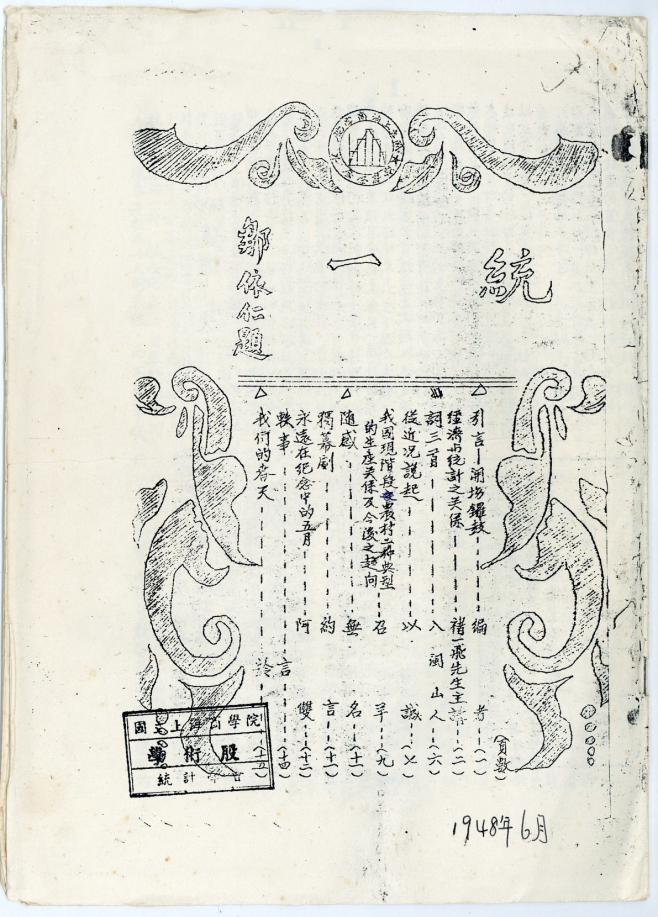 統一
鄒依仁題
(頁數)
引言—開場鑼鼓 編者 (一)
經濟與統計之关係 褚一飛先生主講 (二)
詞三首 入閩山人 (六)
從近况說起 以誠 (七)
我國現階段農村二种典型
的生產关係及今後之趋向 召羊 (九)
随感 無名 (十一)
獨幕劇 約言 (十一)
永遠在纪念中的五月 阿雙 (十二)
軼事 言 (十四)
我們的春天 於
國立上海商學院
學術股
統計學會
1948年6月